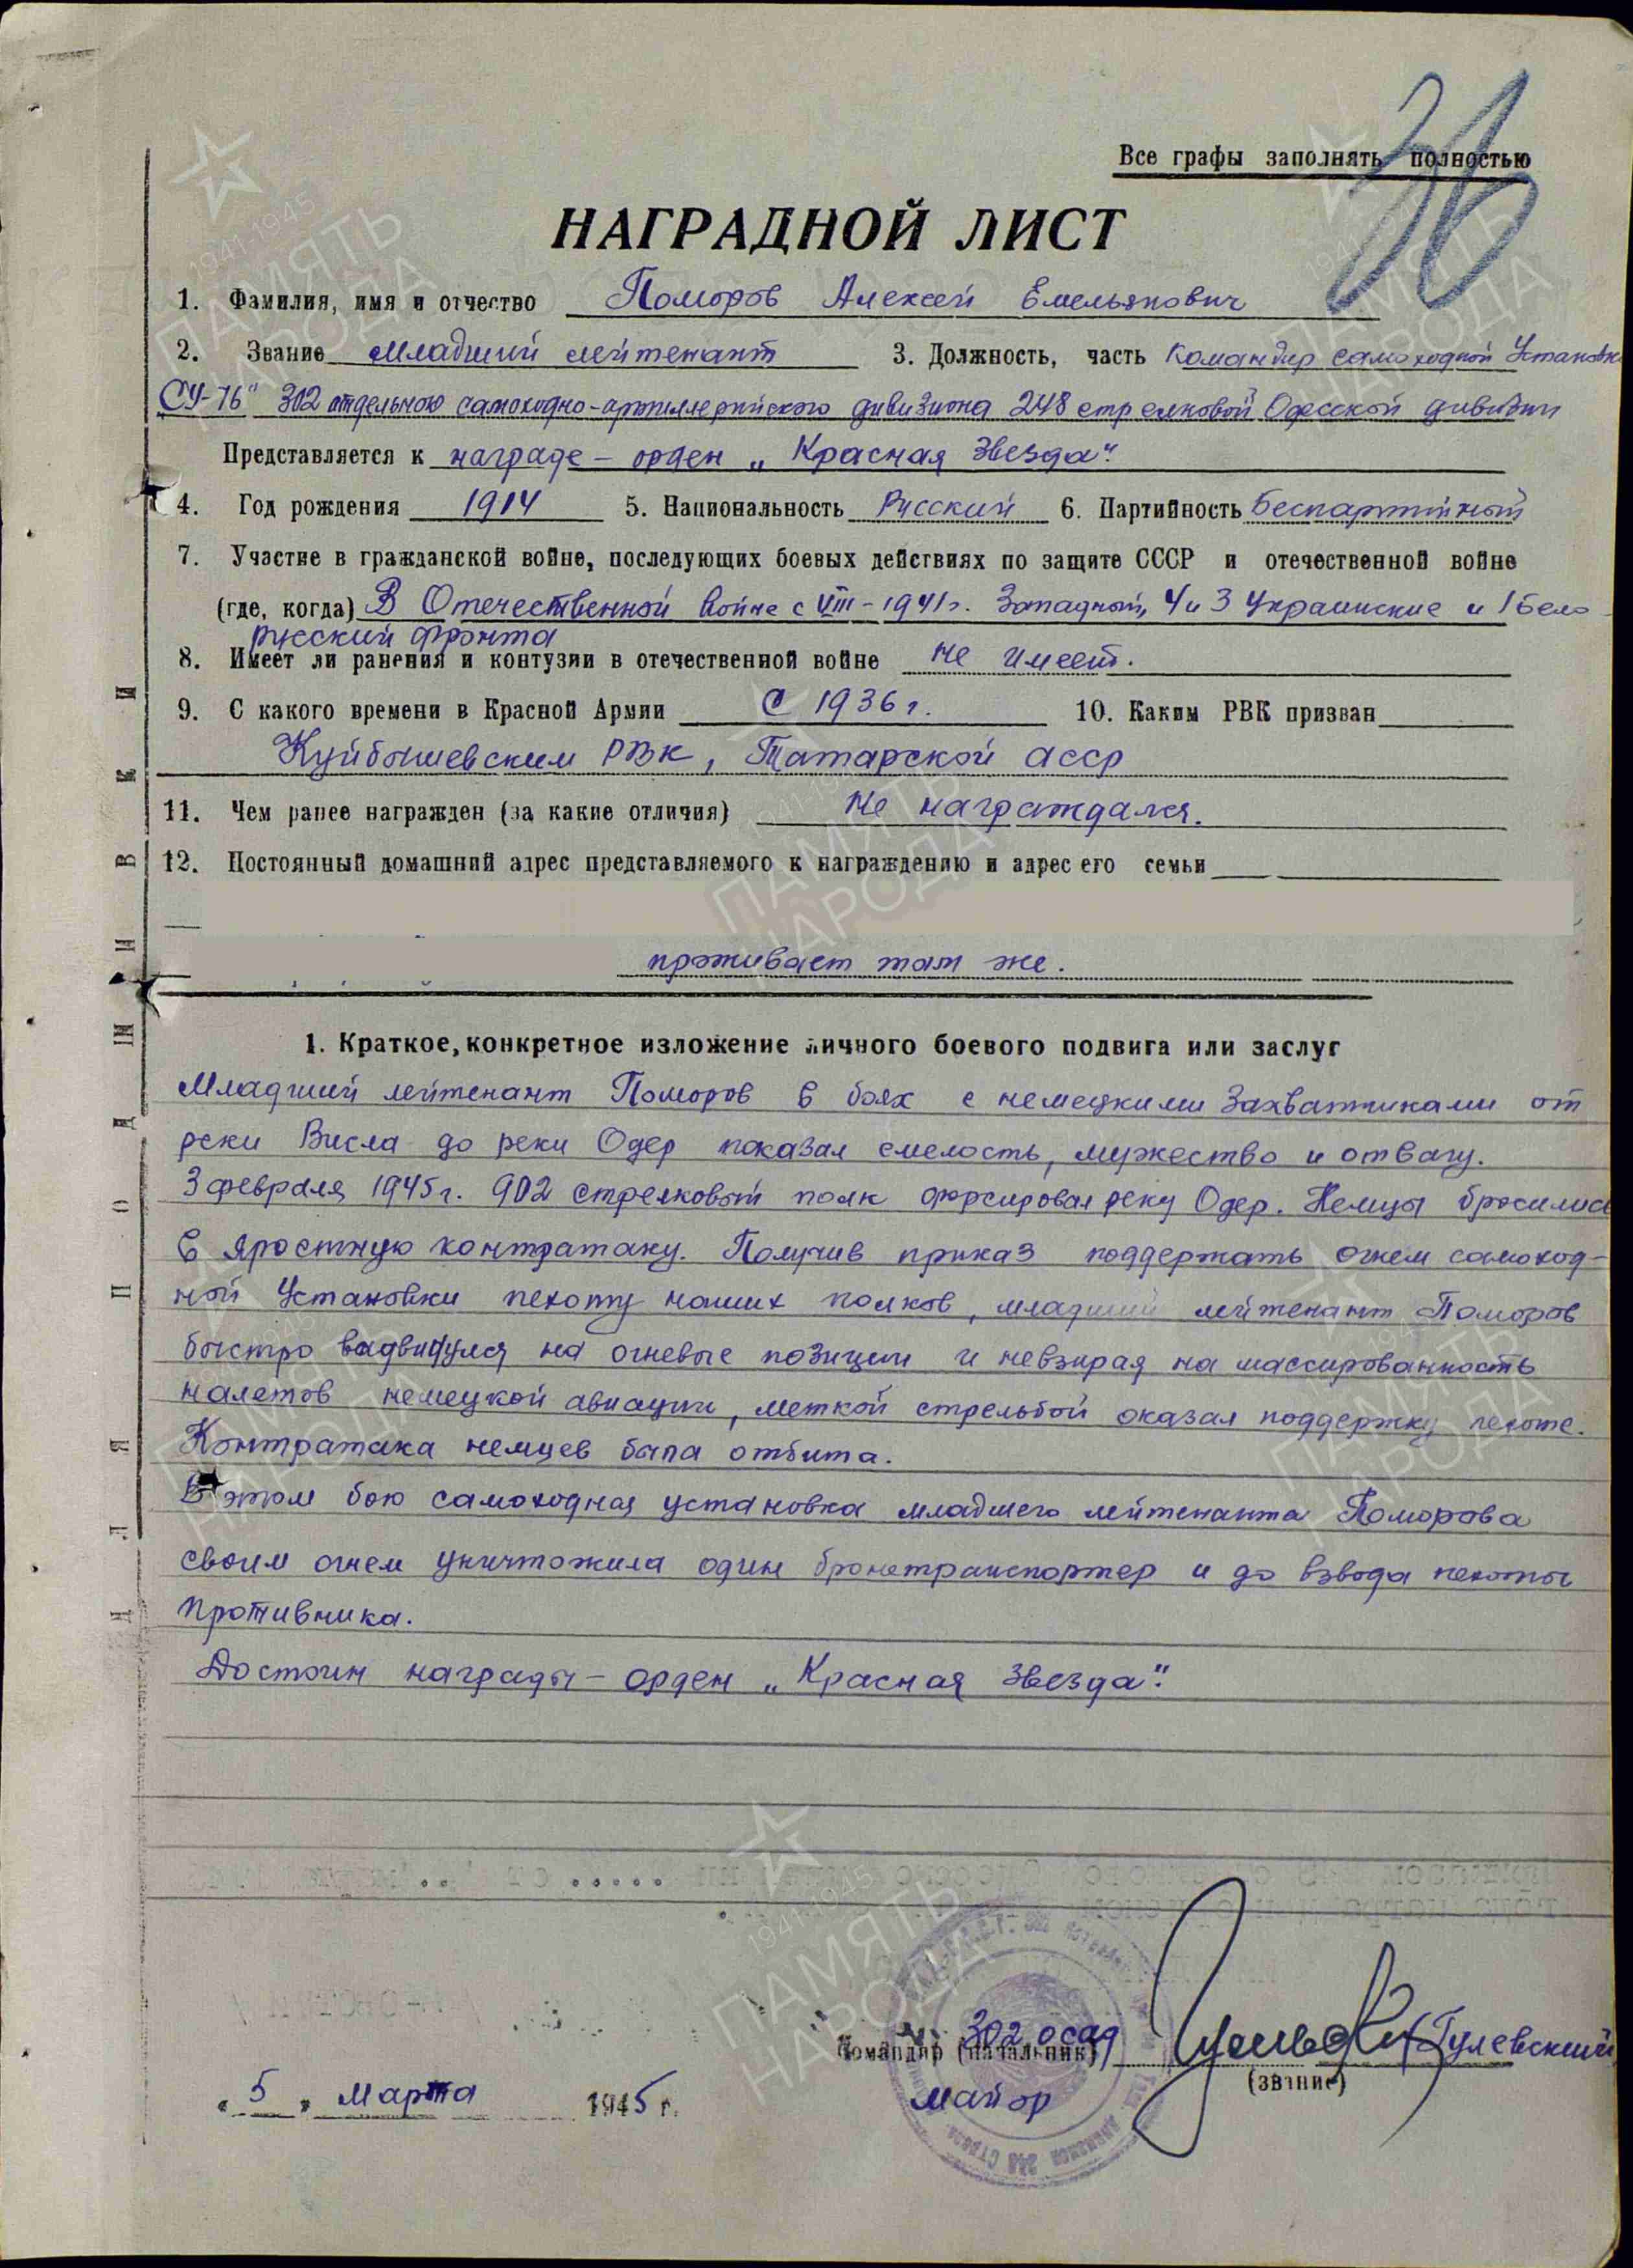 36
Все графы заполнять полностью
НАГРАДНОЙ ЛИСТ
1. Фамилия, имя и отчество Поморов Алексей Емельянович
2. Звание Младший лейтенант 3. Должность, часть Командир самоходной Установки
СУ-76" 302 отдельного самоходно-артиллерийского дивизиона 248 стрелковой Одесской дивизии
Представляется к награде - орден „Красная Звезда".
4. Год рождения 1914 5. Национальность Русский 6. Партийность Беспартийный
7. Участие в гражданской войне, последующих боевых действиях по защите СССР и отечественной войне
(где, когда) В Отечественной войне с VIII-1941г. Западный, 4 и 3 Украинские и 1 Бело-
русский фронта
8. Имеет ли ранения и контузии в отечественной войне не имеет.
9. С какого времени в Красной Армии С 1936 г. 10. Каким РВК призван
Куйбышевским РВК, Татарской АССР
11. Чем ранее награжден (за какие отличия) не награждался.
12. Постоянный домашний адрес представляемого к награждению и адрес его семьи
проживает там же.
1. Краткое, конкретное изложение личного боевого подвига или заслуг
Младший лейтенант Поморов в боях с немецкими захватчиками от
реки Висла до реки Одер показал смелость, мужество и отвагу.
3 февраля 1945г. 902 стрелковый полк форсировал реку Одер. Немцы бросились
в яростную контратаку. Получив приказ поддержать огнем самоход-
ной Установки пехоту наших полков, младший лейтенант Поморов
быстро выдвинулся на огневые позиции и невзирая на массированность
налетов немецкой авиации, меткой стрельбой оказал поддержку пехоте.
Контратака немцев была отбита.
В этом бою самоходная установка младшего лейтенанта Поморова
своим огнем уничтожила один бронетранспортер и до взвода пехоты
противника.
Достоин награды - орден „Красная Звезда".
302 осад
Командир (начальник) (Гулевский)
майор (звание)
„5" Марта 1945 г.
ДЛЯ ПОДШИВКИ
1941-1945
ПАМЯТЬ
НАРОДА